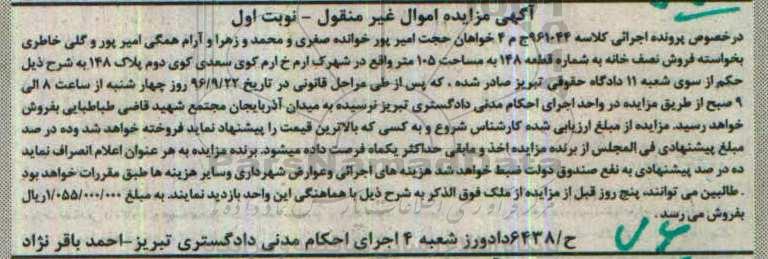 آگهی مزایده اموال غیر منقول - نوبت اول
درخصوص پرونده اجرائی کلاسه ۹۶۱۰۴۴ج م ۴ خواهان حجت امیر پور خوانده صغری و محمد و زهرا و آرام همگی امیر پور و گلی خاطری
بخواسته فروش نصف خانه به شماره قطعه ۱۴۸ به مساحت ۱۰۵ متر واقع در شهرک ارم خ ارم کوی سعدی کوی دوم پلاک ۱۴۸ به شرح ذیل
حکم از سوی شعبه ۱۱ دادگاه حقوقی تبریز صادر شده ، که پس از طی مراحل قانونی در تاریخ ۹۶/۹/۲۲ روز چهار شنبه از ساعت ۸ الی
۹ صبح از طریق مزایده در واحد اجرای احکام مدنی دادگستری تبریز نرسیده به میدان آذربایجان مجتمع شهید قاضی طباطبایی بفروش
خواهد رسید. مزایده از مبلغ ارزیابی شده کارشناس شروع و به کسی که بالاترین قیمت را پیشنهاد نماید فروخته خواهد شد وده در صد
مبلغ پیشنهادی فی المجلس از برنده مزایده اخذ و مابقی حداکثر یکماه فرصت داده میشود. برنده مزایده به هر عنوان اعلام انصراف نماید
ده در صد پیشنهادی به نفع صندوق دولت ضبط خواهد شد هزینه های اجرائی وعوارض شهرداری وسایر هزینه ها طبق مقررات خواهد بود
. طالبین می توانند، پنج روز قبل از مزایده از ملک فوق الذکر به شرح ذیل با هماهنگی این واحد بازدید نمایند. به مبلغ ۱/۰۵۵/۰۰۰/۰۰۰ریال
بفروش می رسد .
ح/۶۴۳۸دادورز شعبه ۴ اجرای احکام مدنی دادگستری تبریز-احمد باقر نژاد